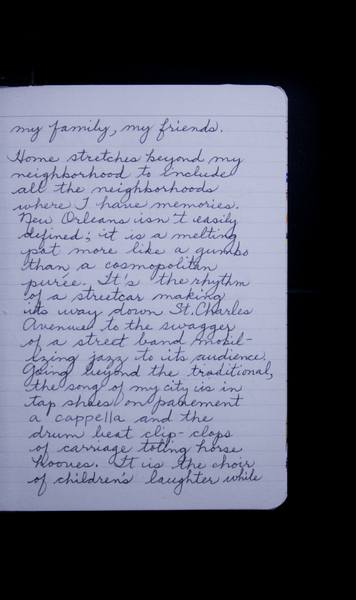 my family, my friends.
Home stretches beyond my
neighborhood to include
all the neighborhoods
where I have memories.
New Orleans isn't easily
defined; it is a melting
pot more like a gumbo
than a cosmopolitan
purée. It's the rhythm
of a streetcar making
its way down St. Charles
Avenue to the swagger
of a street band mobil-
izing jazz to its audience.
Going beyond the traditional,
the song of my city is in
tap shoes on pavement
a cappella and the
drum beat clip-clops
of carriage toting horse
hooves. It is the choir
of children's laughter while